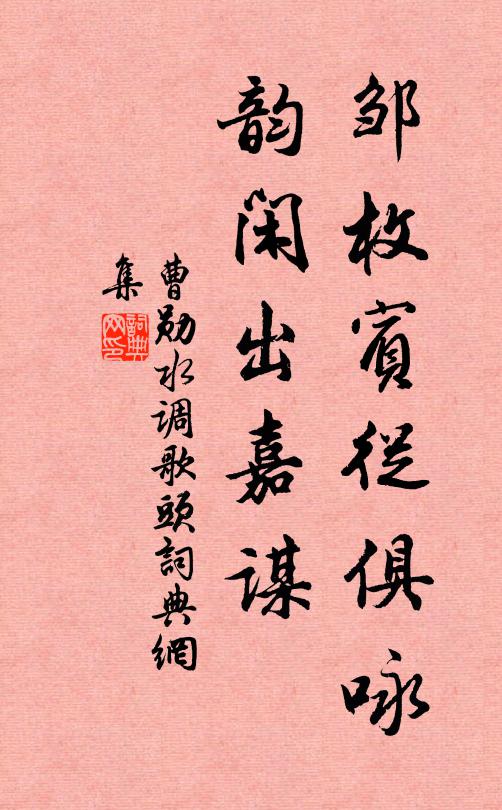 邹枚賓從俱咏
韵闲出嘉谋
曹勋水调歌头詞典網
集
詞典
网印